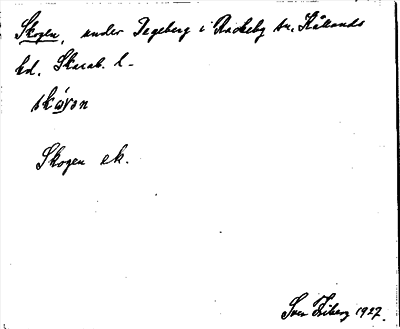 Skogen, under Tegeberg i Rackeby sn. Kålands
hd. Skarab. l.
skó̱γən
Skogen ek.
Sven Friberg 1927.